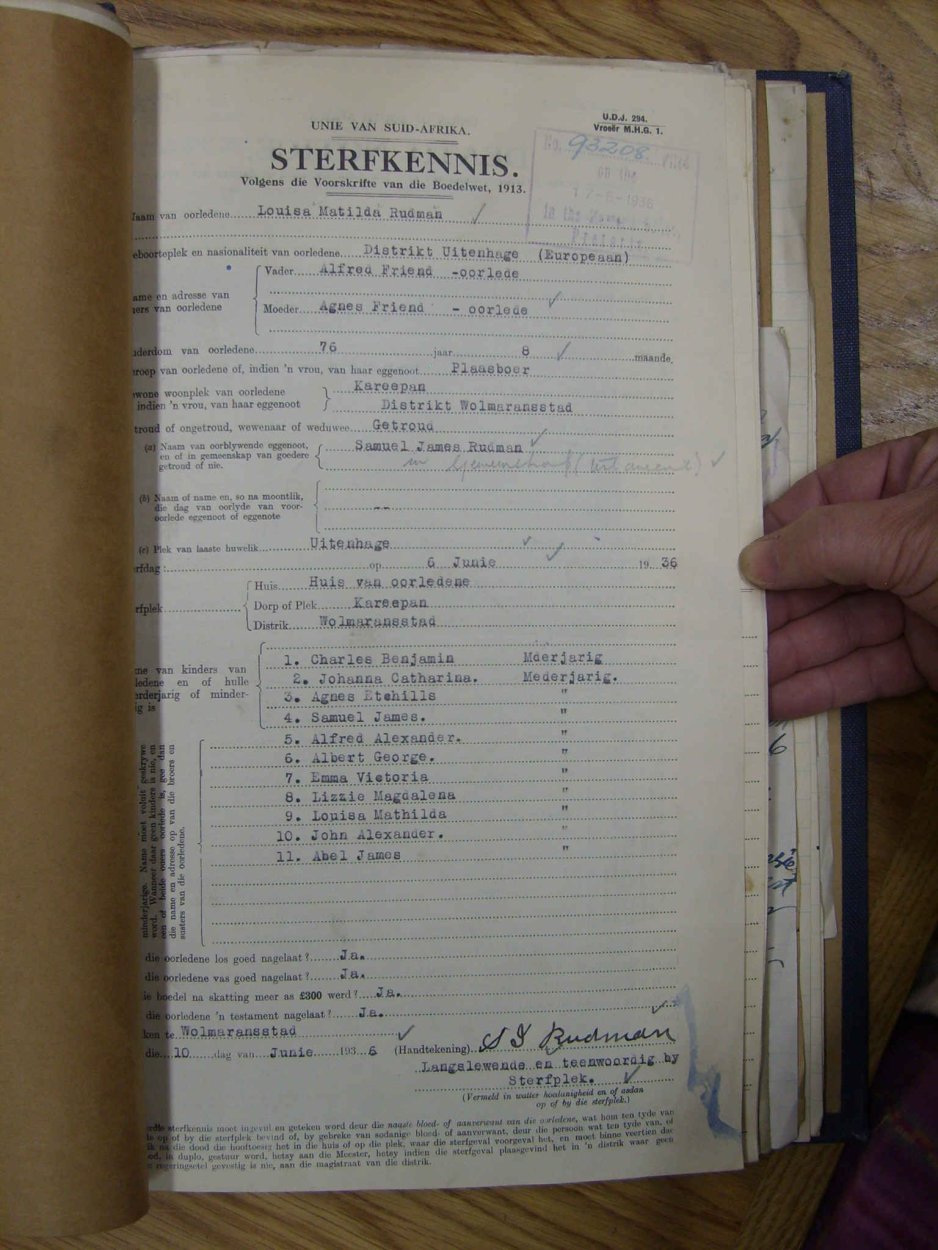 U.D.J. 294.
Vroeër M.H.G. 1.
UNIE VAN SUID-AFRIKA.
STERFKENNIS.
Volgens die Voorskrifte van die Boedelwet, 1913.
No. 93208 Filed
on the
17-6-1936
in the
Pretoria
Naam van oorledene Louisa Matilda Rudman
eboorteplek en nasionaliteit van oorledene Distrikt Uitenhage (Europeaan)
Vader Alfred Friend -oorlede
ame en adresse van
ers van oorledene
Moeder Agnes Friend - oorlede
uderdom van oorledene 76 jaar 8 maande,
roep van oorledene of, indien 'n vrou, van haar eggenoot Plaasboer
ewone woonplek van oorledene Kareepan
indien 'n vrou, van haar eggenoot Distrikt Wolmaransstad
troud of ongetroud, wewenaar of weduwee Getroud
(a) Naam van oorblywende eggenoot, en of in gemeenskap van goedere getroud of nie. Samuel James Rudman
in
(b) Naam of name en, so na moontlik, die dag van oorlyde van voor-oorlede eggenoot of eggenote --
(c) Plek van laaste huwelik Uitenhage
erfdag : op 6 Junie 19 36
Huis Huis van oorledene
rfplek Dorp of Plek Kareepan
Distrik Wolmaransstad
me van kinders van
ledene en of hulle
erderjarig of minder-
ig is
1. Charles Benjamin Mderjarig
2. Johanna Catharina. Mederjarig.
3. Agnes Etchills "
4. Samuel James. "
5. Alfred Alexander. "
6. Albert George. "
7. Emma Victoria "
8. Lizzie Magdalena "
9. Louisa Mathilda "
10. John Alexander. "
11. Abel James "
minderjarige. Name moet voluit geskrywe
word. Wanneer daar geen kinders is nie, en
een of beide ouers oorlede is, gee dan
die name en adresse op van die broers en
susters van die oorledene.
die oorledene los goed nagelaat ? Ja.
die oorledene vas goed nagelaat ? Ja.
ie boedel na skatting meer as £300 werd ? Ja.
die oorledene 'n testament nagelaat ? Ja.
ken te Wolmaransstad
die 10 dag van Junie 193 6 (Handtekening) S J Rudman
Langslewende en teenwoordig by
Sterfplek.
(Vermeld in watter hoedanigheid en of aldan
op of by die sterfplek.)
erdie sterfkennis moet ingevul en geteken word deur die naaste bloed- of aanverwant van die oorledene, wat hom ten tyde van
op of by die sterfplek bevind of, by gebreke van sodanige bloed- of aanverwant, deur die persoon wat ten tyde van, of
na die dood die hooftoesig het in die huis of op die plek, waar die sterfgeval voorgeval het, en moet binne veertien dae
in duplo, gestuur word, hetsy aan die Meester, hetsy indien die sterfgeval plaasgevind het in 'n distrik waar geen
regeringsetel gevestig is nie, aan die magistraat van die distrik.